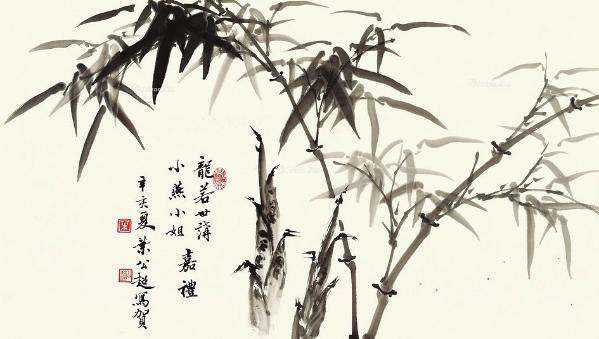 龍若世講
小燕小姐
嘉禮
辛亥夏葉公超寫賀